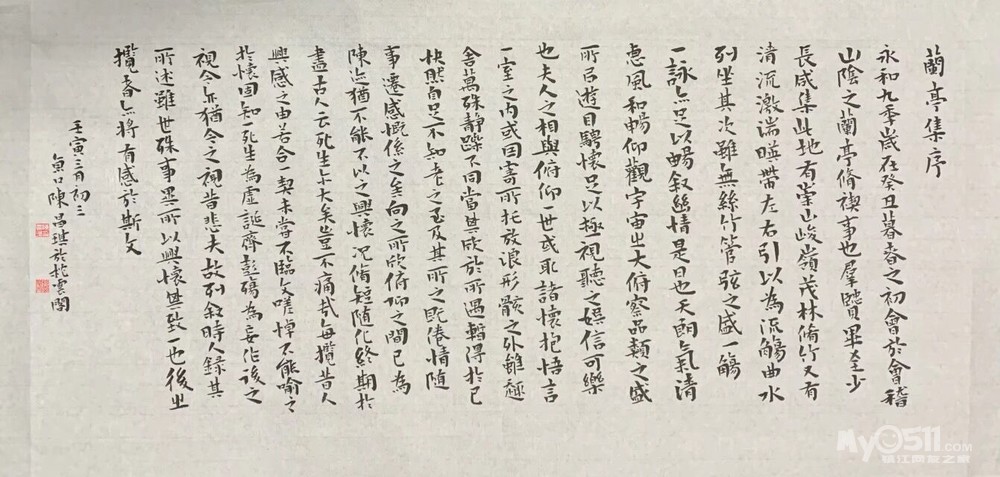 蘭亭集序
永和九季歲在癸丑暮春之初會於會稽
山陰之蘭亭脩禊事也羣賢畢至少
長咸集此地有崇山峻嶺茂林脩竹又有
清流激湍暎帶左右引以為流觴曲水
列坐其次雖無絲竹管弦之盛一觴
一詠亦足以暢叙幽情是日也天朗氣清
惠風和暢仰觀宇宙之大俯察品類之盛
所㠯遊目騁懷足以極視聽之娛信可樂
也夫人之相與俯仰一世或取諸懷抱悟言
一室之內或因寄所托放浪形骸之外雖趣
舍萬殊靜躁不同當其欣於所遇暫得於己
快然自足不知老之至及其所之既倦情隨
事遷感慨係之矣向之所欣俯仰之間已為
陳迹猶不能不以之興懷況脩短隨化終期於
盡古人云死生亦大矣豈不痛哉每攬昔人
興感之由若合一契未嘗不臨文嗟悼不能喻之
於懷固知一死生為虛誕齊彭殤為妄作後之
視今亦猶今之視昔悲夫故列叙時人錄其
所述雖世殊事異所以興懷其致一也後之
攬者亦將有感於斯文
壬寅三月初三
陳昌琪於挹雲閣
My0511.COM
镇江网友之家